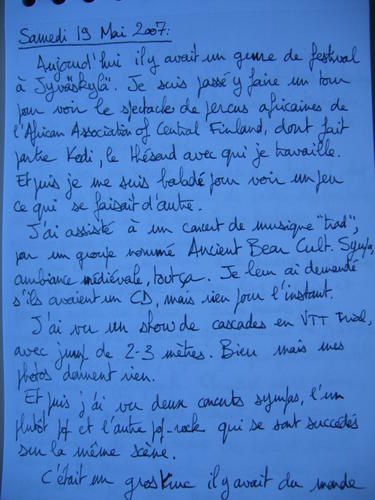 Samedi 19 Mai 2007:
Aujourd'hui il y avait un genre de festival
à Jyväskylä. Je suis passé y faire un tour
pour voir le spectacle de percus africaines de
l'African Association of Central Finland, dont fait
partie Kodi, le thésard avec qui je travaille.
Et puis je me suis baladé pour voir un peu
ce qui se faisait d'autre.
J'ai assisté à un concert de musique "trad",
par un groupe nommé Ancient Bear Cult. Sympa,
ambiance médiévale, tout ça. Je leur ai demandé
s'ils avaient un CD, mais rien pour l'instant.
J'ai vu un show de cascades en VTT Trial,
avec jump de 2-3 mètres. Bien mais mes
photos donnent rien.
Et puis j'ai vu deux concerts sympas, l'un
plutôt pop et l'autre pop-rock qui se sont succédés
sur la même scène.
C'était un gros truc il y avait du monde